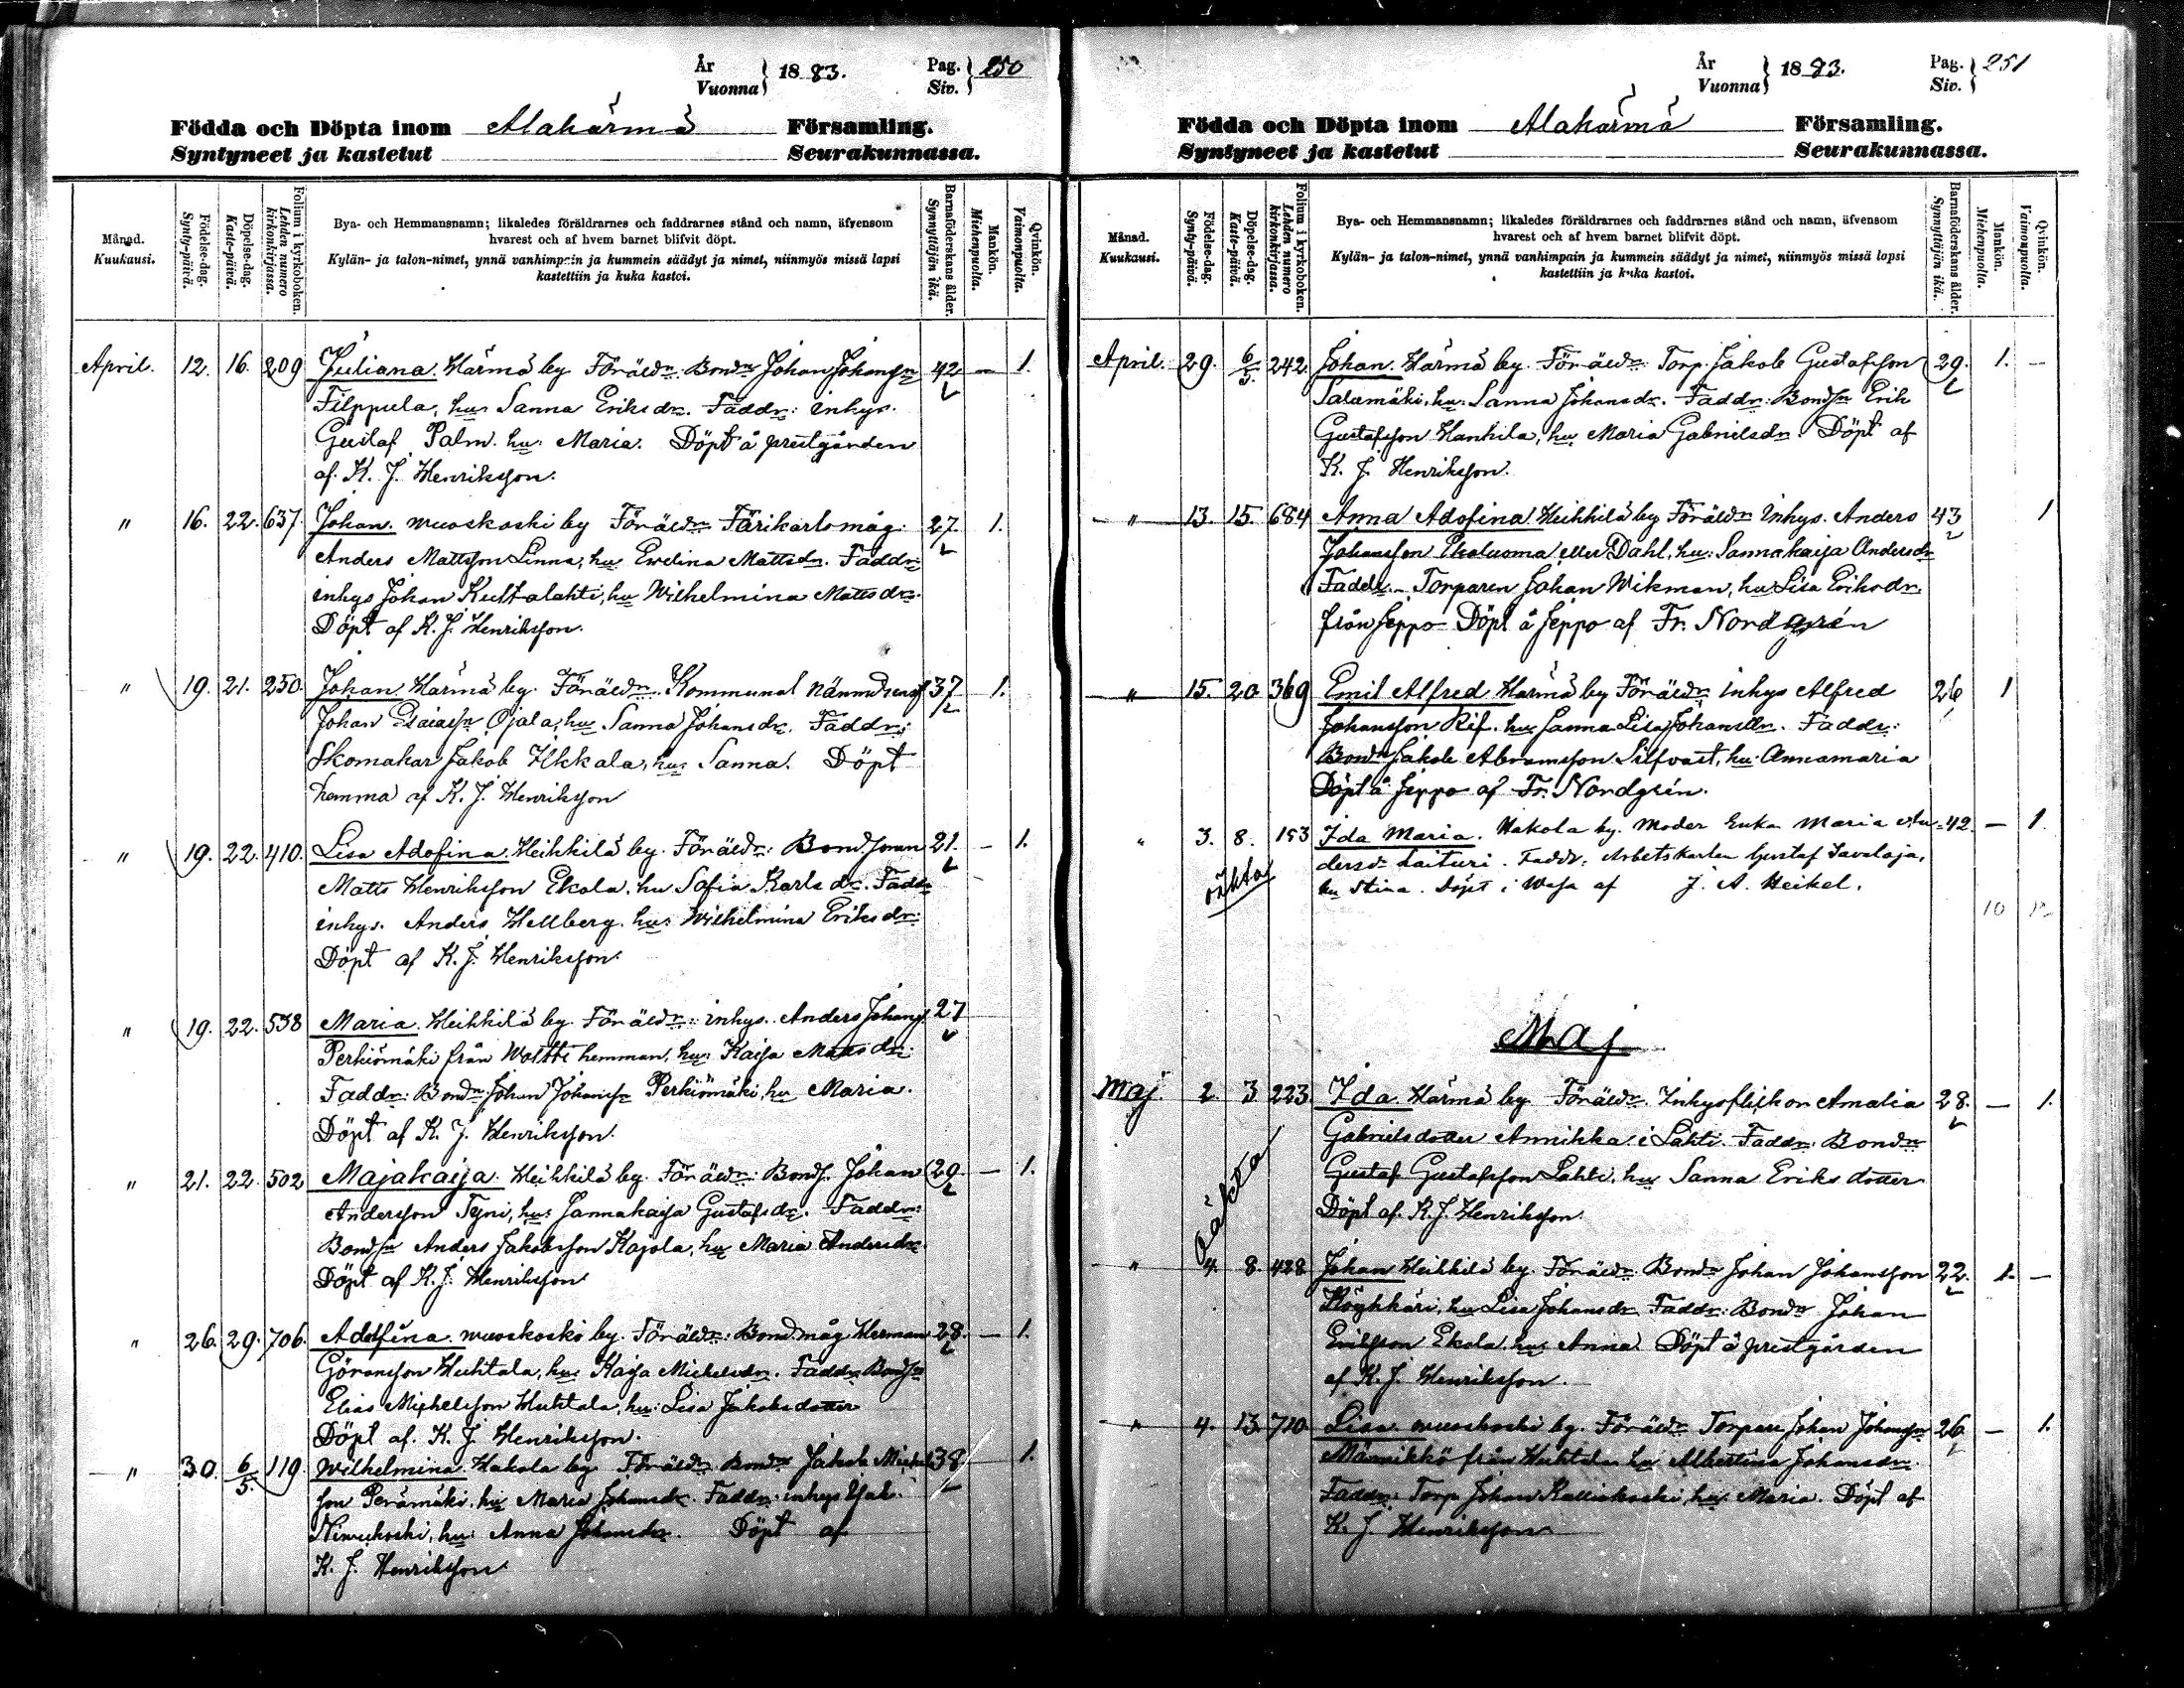 År
Vuonna } 1883.
Pag.
Siv. } 250
Födda och Döpta inom Alahärmä Församling.
Syntyneet ja kastetut Seurakunnassa.
Månad.
Kuukausi.
Födelse-dag.
Synty-päivä.
Döpelse-dag.
Kaste-päivä.
Folium i kyrkoboken.
Lehden numero kirkonkirjassa.
Bya- och Hemmansnamn; likaledes föräldrarnes och faddrarnes stånd och namn, äfvensom
hvarest och af hvem barnet blifvit döpt.
Kylän- ja talon-nimet, ynnä vanhimpain ja kummein säädyt ja nimet, niinmyös missä lapsi
kastettiin ja kuka kastoi.
Barnaföderskans ålder.
Synnyttäjän ikä.
Mankön.
Miehenpuolta.
Qvinkön.
Vaimonpuolta.
April. 12. 16. 209 Juliana. Härmä by Föräldr: Bondn Johan Johanssn 42 — 1.
Filppula, hu: Sanna Eriksdr. Faddr: inhys.
Gustaf Palm. hu: Maria. Döpt å prestgården
af K. J. Henriksson.
" 16. 22. 637. Johan. muoskoski by Föräldr: Färikarls måg. 27. 1.
Anders Mattsson Linna, hu Evelina Mattsdr. Faddr:
inhys Johan Kultalahti, hu Wilhelmina Mattsdr.
Döpt af K. J. Henriksson.
" 19. 21. 250. Johan. Härmä by. Föräldr: Kommunal nämnd 37 1.
Johan Esaiassn Ojala, hu Sanna Johansdr. Faddr:
Skomakar Jakob Ilkkala, hu: Sanna. Döpt
hemma af K. J. Henriksson
" 19. 22. 410. Lisa Adofina. Heikkilä by. Föräldr: Bond. sonen 21. — 1.
Matts Henriksson Ekola, hu Sofia Karlsdr. Faddr
inhys. Anders Hellberg. hu: Wilhelmina Eriksdr:
Döpt af K. J. Henriksson.
" 19. 22. 538 Maria. Heikkilä by. Föräldr: inhys. Anders Johanss 27
Perkiömäki från Woltti hemman, hu: Kaisa Mattsdr:
Faddr: Bondn: Johan Johanssn Perkiömäki, hu Maria.
Döpt af K. J. Henriksson.
" 21. 22. 502 Majakaija. Heikkilä by. Föräldr: Bonds. Johan 29. — 1.
Andersson Teyni, hu: Sannakaisa Gustafsdr. Faddr:
Bondsn Anders Jakobsson Kajola, hu Maria Andersdr.
Döpt af K. J. Henriksson
" 26. 29. 706. Adolfina. muoskoski by. Föräldr: Bond. måg Herman 28. — 1.
Göransson Huhtala, hu: Kaisa Michelsdr. Faddr Bondsn
Elias Michelsson Huhtala, hu: Lisa Jakobsdotter
Döpt af. K. J. Henriksson.
" 30. 6/5. 119. Wilhelmina. Hakola by. Föräldr: Bondn Jakob Michels 38 1.
son Perämäki. hu Maria Johansdr. Faddr: inhys Isak
hu: Anna Johansdr. Döpt af
K. J. Henriksson
År
Vuonna } 1883.
Pag.
Siv. } 251
Födda och Döpta inom Alahärmä Församling.
Syntyneet ja kastetut Seurakunnassa.
Månad.
Kuukausi.
Födelse-dag.
Synty-päivä.
Döpelse-dag.
Kaste-päivä.
Folium i kyrkoboken.
Lehden numero kirkonkirjassa.
Bya- och Hemmansnamn; likaledes föräldrarnes och faddrarnes stånd och namn, äfvensom
hvarest och af hvem barnet blifvit döpt.
Kylän- ja talon-nimet, ynnä vanhimpain ja kummein säädyt ja nimet, niinmyös missä lapsi
kastettiin ja kuka kastoi.
Barnaföderskans ålder.
Synnyttäjän ikä.
Mankön.
Miehenpuolta.
Qvinkön.
Vaimonpuolta.
April. 29. 6/5. 242. Johan. Härmä by. Föräldr: Torp. Jakob Gustafsson 29. 1. —
Salamäki, hu: Sanna Johansdr. Faddr: Bondsn Erik
Gustafsson Hankila, hu Maria Gabrielsdr. Döpt af
K. J. Henriksson.
" 13. 15. 684 Anna Adofina Heikkilä by Föräldr Inhys. Anders 43 1
Johansson Ekoluoma eller Dahl, hu: Sannakaija Andersdr
Faddr. Torparen Johan Wikman, hu Lisa Eriksdr.
från Jeppo Döpt å Jeppo af Fr. Nordgrén
" 15. 20 369 Emil Alfred Härmä by Föräldr inhys Alfred 26 1
Johansson Rif. hu Sanna Lisa Johansdr. Faddr:
Bondn Jakob Abramsson Silfvast, hu: Annamaria
Döpt å Jeppo af Fr. Nordgrén.
" 3. 8. 153 Ida Maria. Hakola by. Moder Enka Maria An- 42 — 1.
dersdr Laituri. Faddr: Arbetskarlen Gustaf Savaloja,
hu Stina. Döpt i Wasa af J. A. Heikel.
oäkta
10
Maj
Maj. 2. 3 223. Ida Härmä by Föräldr. Inhysflickan Amalia 28. — 1.
Gabrielsdotter Annikka i Lahti. Faddr: Bondn
Gustaf Gustafsson Lahti, hu Sanna Eriksdotter
Döpt af. K. J. Henriksson.
oäkta
" 4. 8. 428 Johan Heikkilä by. Föräldr Bondn Johan Johansson 22. 1. —
Köykkäri, hu Lisa Johansdr Faddr: Bondn Johan
Eriksson Ekola. hu: Anna Döpt å prestgården
af K. J. Henriksson.
" 4. 13. 710 Lisa muoskoski by. Föräldr Torpare Johan Johansson 26 — 1.
Männikkö från Huhtala hu Albertina Johansdr.
Faddr: Torp. Johan Kalliokoski, hu: Maria. Döpt af
K. J. Henriksson